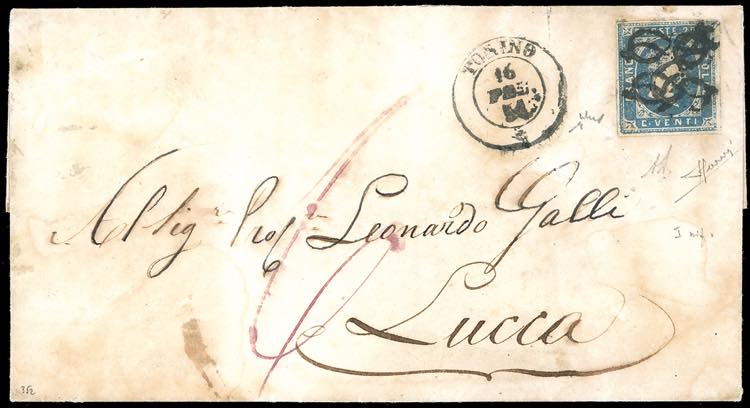 TORINO
16
FEB
54
FRANCO
C. VENTI
Al Sig.r Prof.r Leonardo Galli
Lucca
6
352